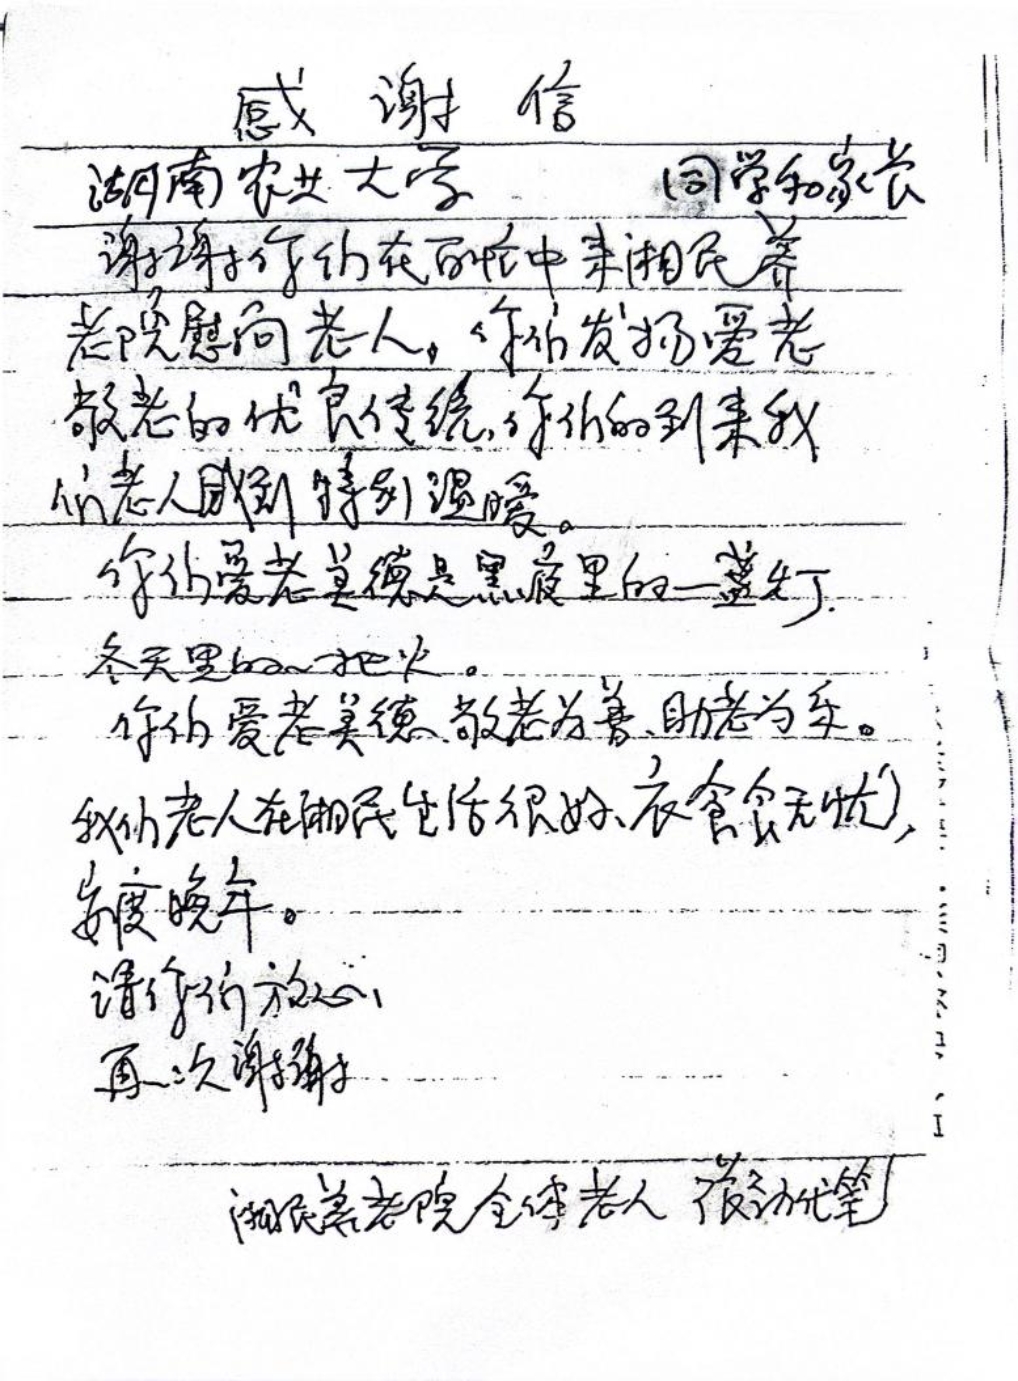 感谢信
湖南农业大学 同学和家长
谢谢你们在百忙中来湘民养
老院慰问老人，你们发扬爱老
敬老的优良传统，你们的到来我
们老人感到特别温暖。
你们爱老美德是黑夜里的一盏灯.
冬天里的一把火。
你们爱老美德、敬老为善、助老为乐。
我们老人在湘民生活很好、衣食无忧,
安度晚年。
请你们放心、
再一次谢谢
湘民养老院全体老人 代笔